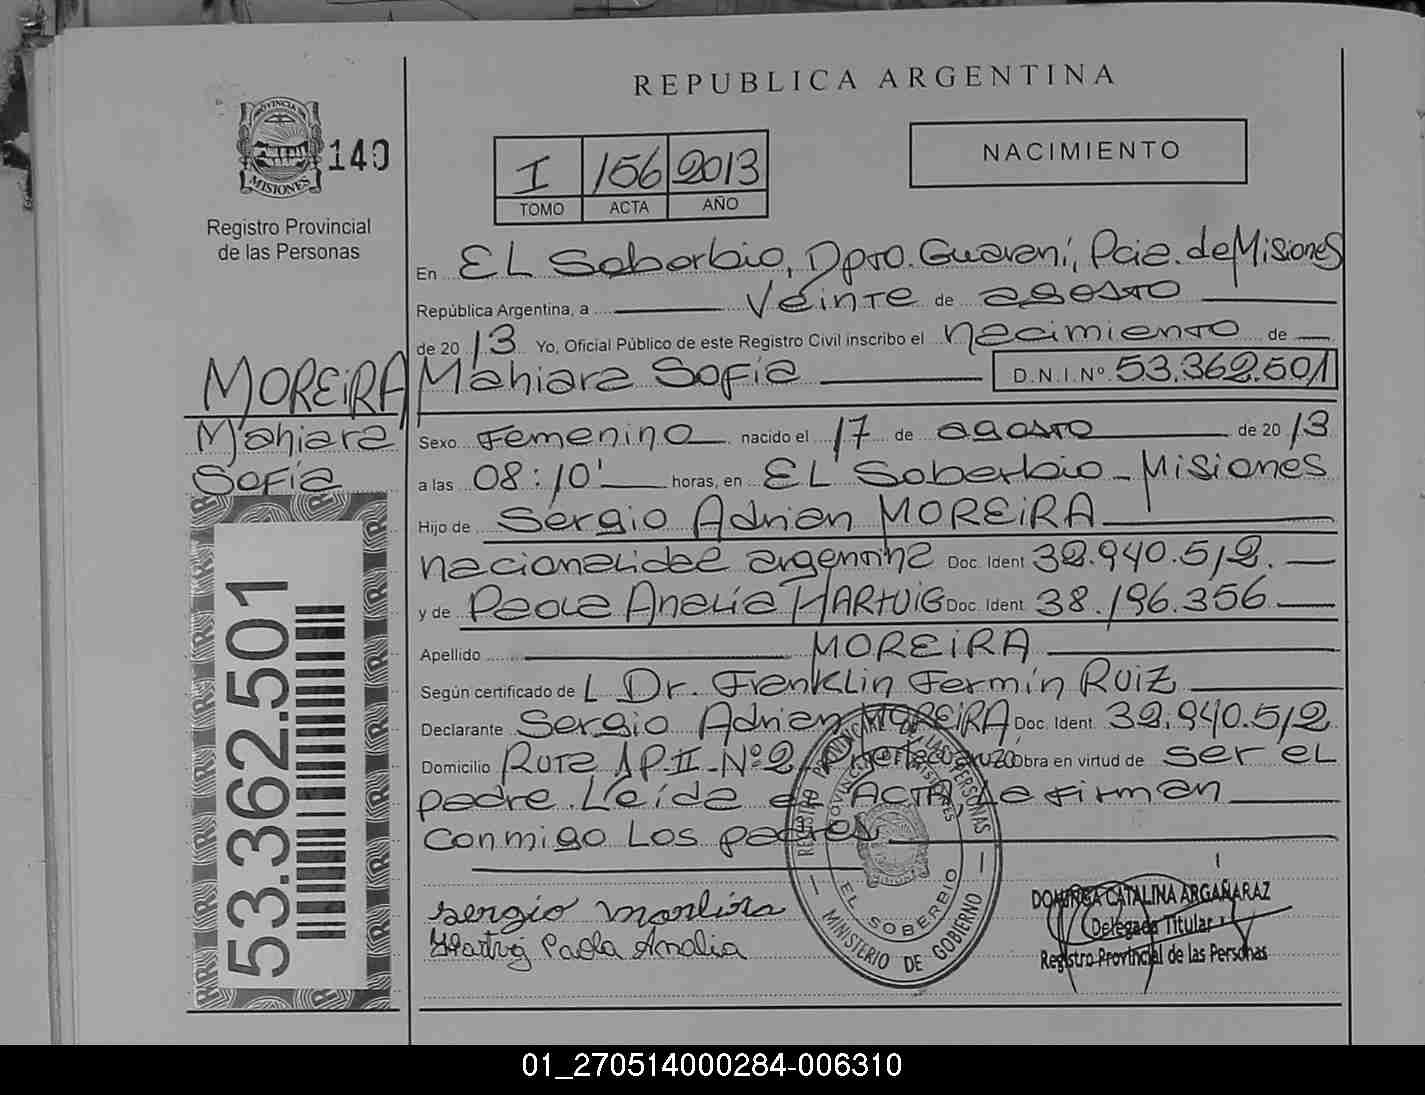 REPUBLICA ARGENTINA
PROVINCIA DE
MISIONES
140
Registro Provincial
de las Personas
I 156 2013
TOMO ACTA AÑO
NACIMIENTO
En El Soberbio, Dpto. Guaraní, Pcia. de Misiones
República Argentina, a Veinte de agosto
de 20 13 Yo, Oficial Público de este Registro Civil inscribo el nacimiento de
Mahiara Sofía D.N.I.Nº 53.362.501
MOREIRA
Mahiara
Sofía
53.362.501
Sexo Femenino nacido el 17 de agosto de 20 13
a las 08:10' horas, en El Soberbio - Misiones
Hijo de Sergio Adrian MOREIRA
nacionalidad argentina Doc. Ident 32.940.512.
y de Paola Analía HARTVIG Doc. Ident. 38.196.356
Apellido MOREIRA
Según certificado de L Dr. Franklin Fermín Ruiz
Declarante Sergio Adrian MOREIRA Doc. Ident. 32.940.512
Domicilio Ruta Nº 2 Obra en virtud de ser el
padre. Leída el ACTA, la firman
conmigo los padres
Sergio
Hartvig Paola Analia
REGISTRO PROVINCIAL DE LAS PERSONAS
PROVINCIA DE MISIONES
EL SOBERBIO
MINISTERIO DE GOBIERNO
DOMINGA CATALINA ARGAÑARAZ
Delegada Titular
Registro Provincial de las Personas
01_270514000284-006310